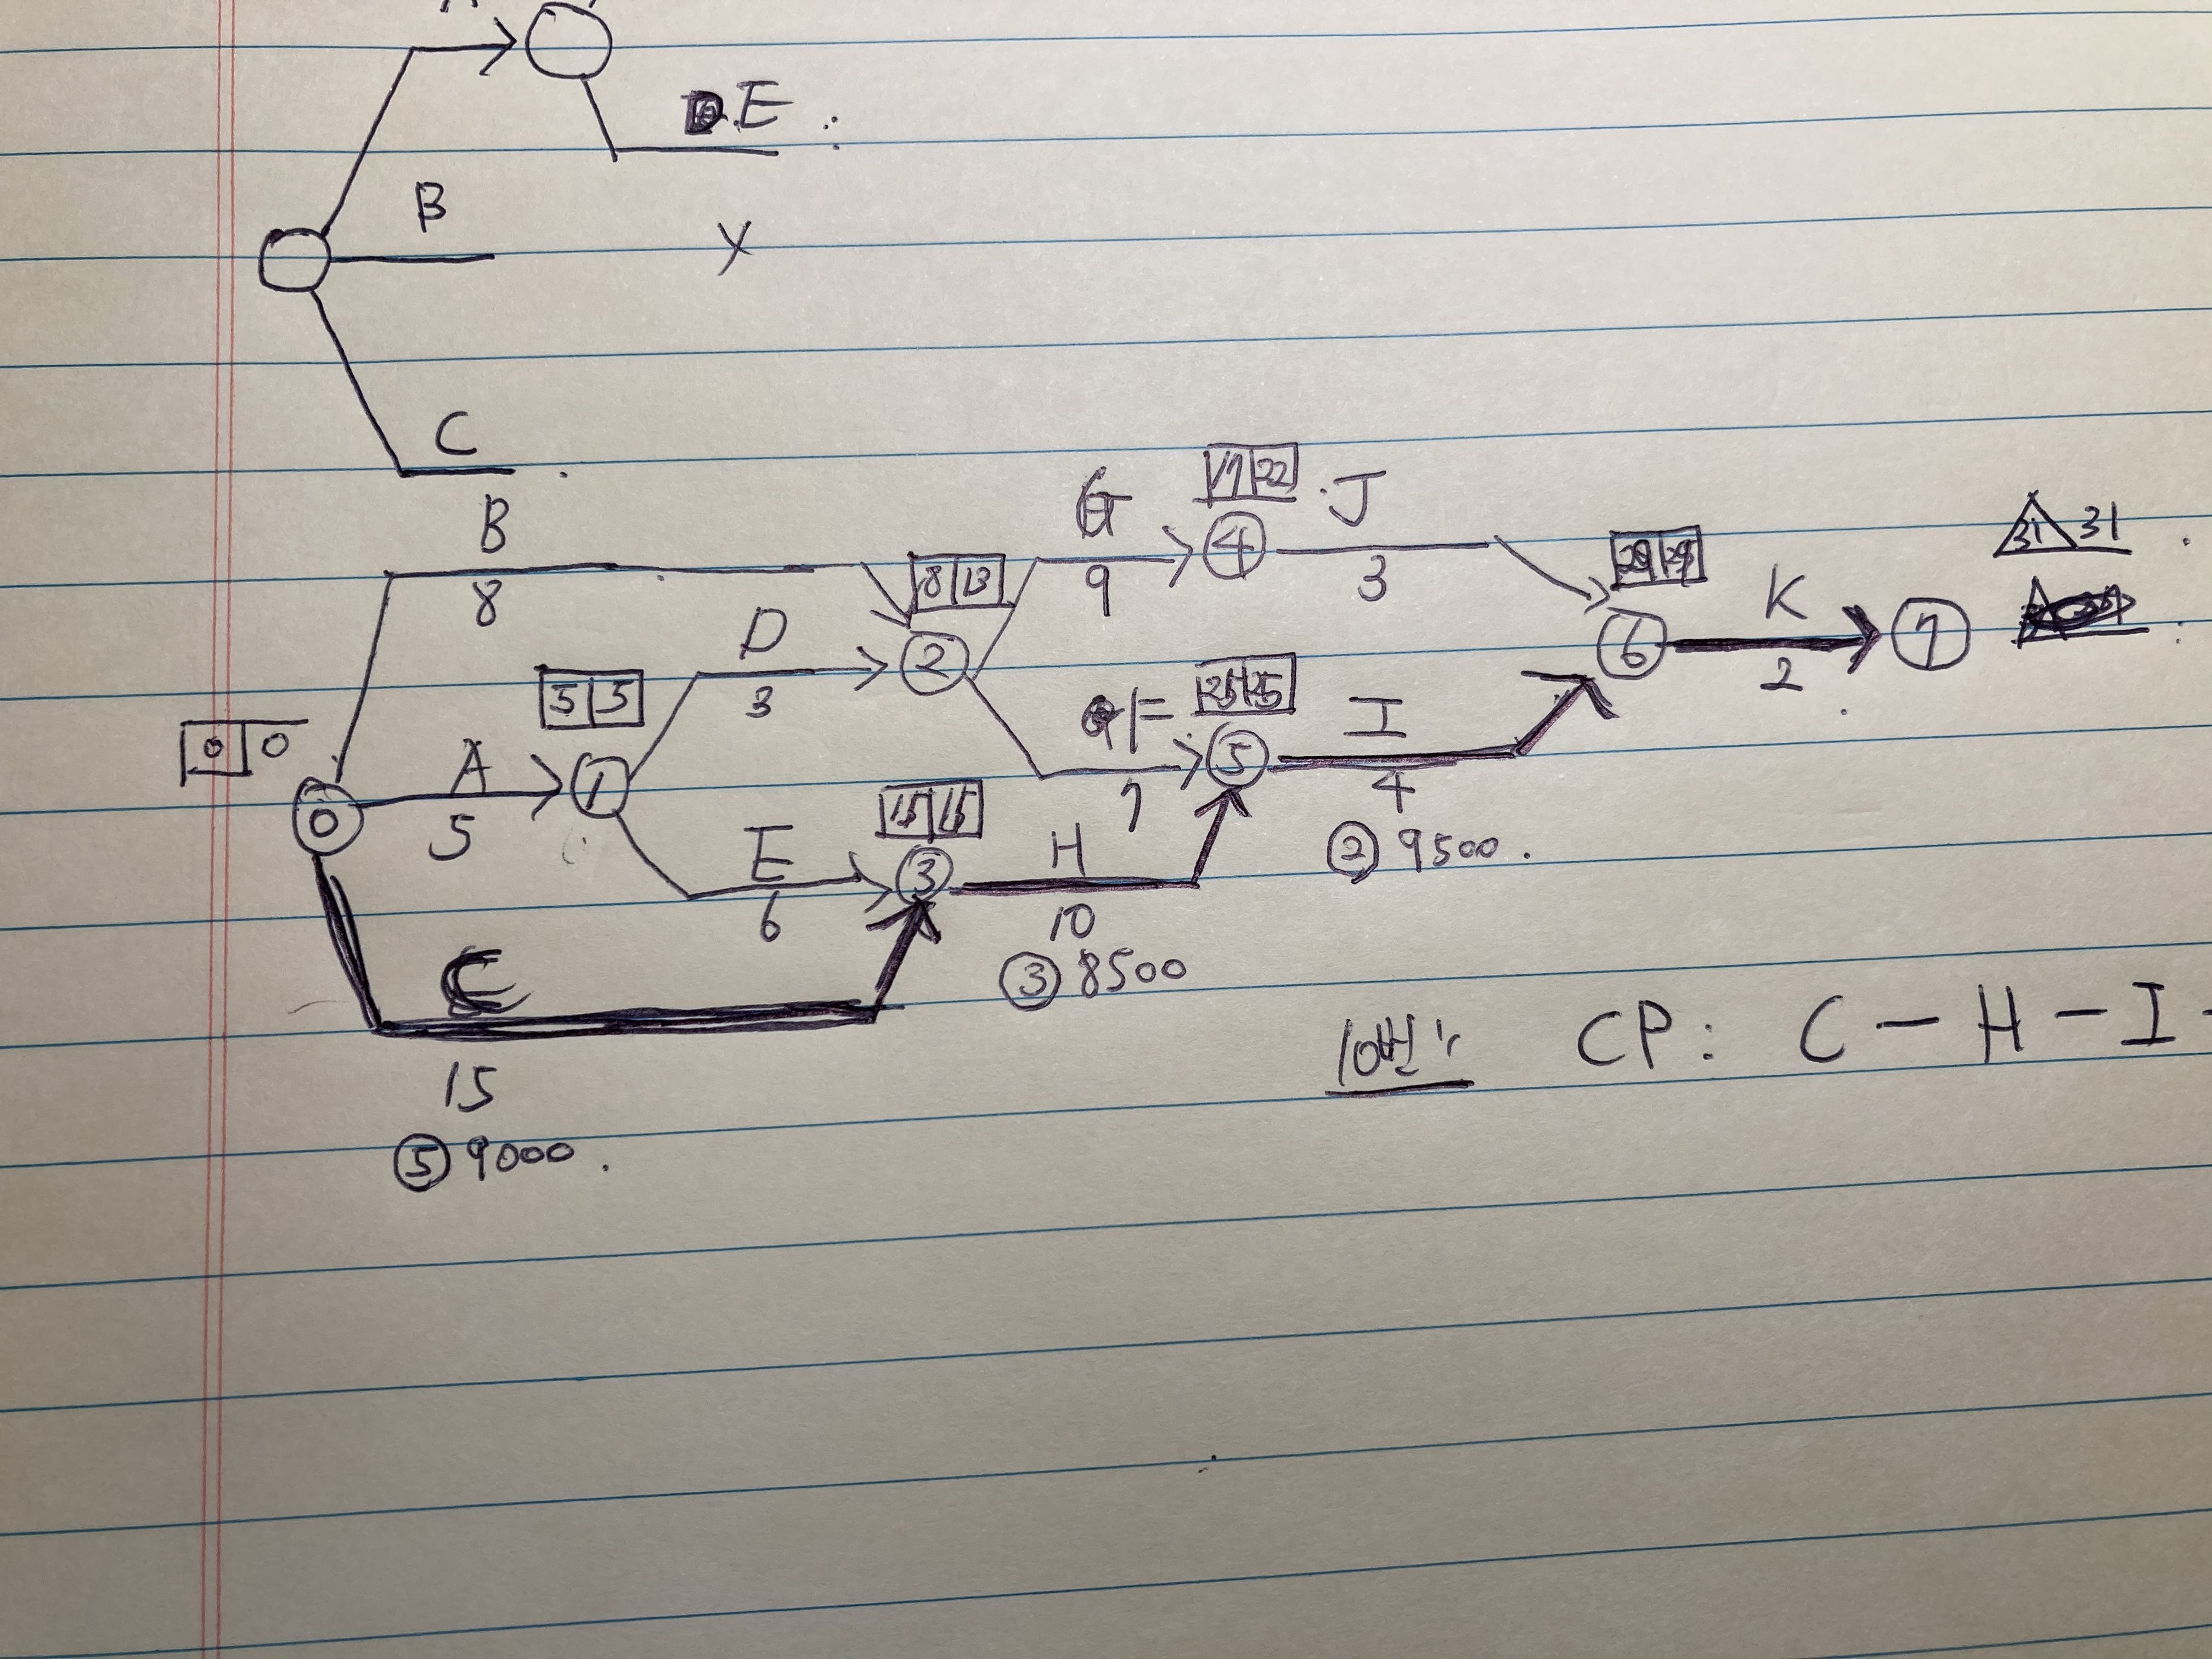 E
B
X
C
B
8
G
9
17 22
4
J
3
31 31
8 13
2
D
3
5 5
29 29
6
K
2
7
0 0
0
A
5
1
F
7
25 25
5
I
4
② 9500.
15 15
3
E
6
H
10
③ 8500
C
15
⑤ 9000.
10번
CP: C - H - I -